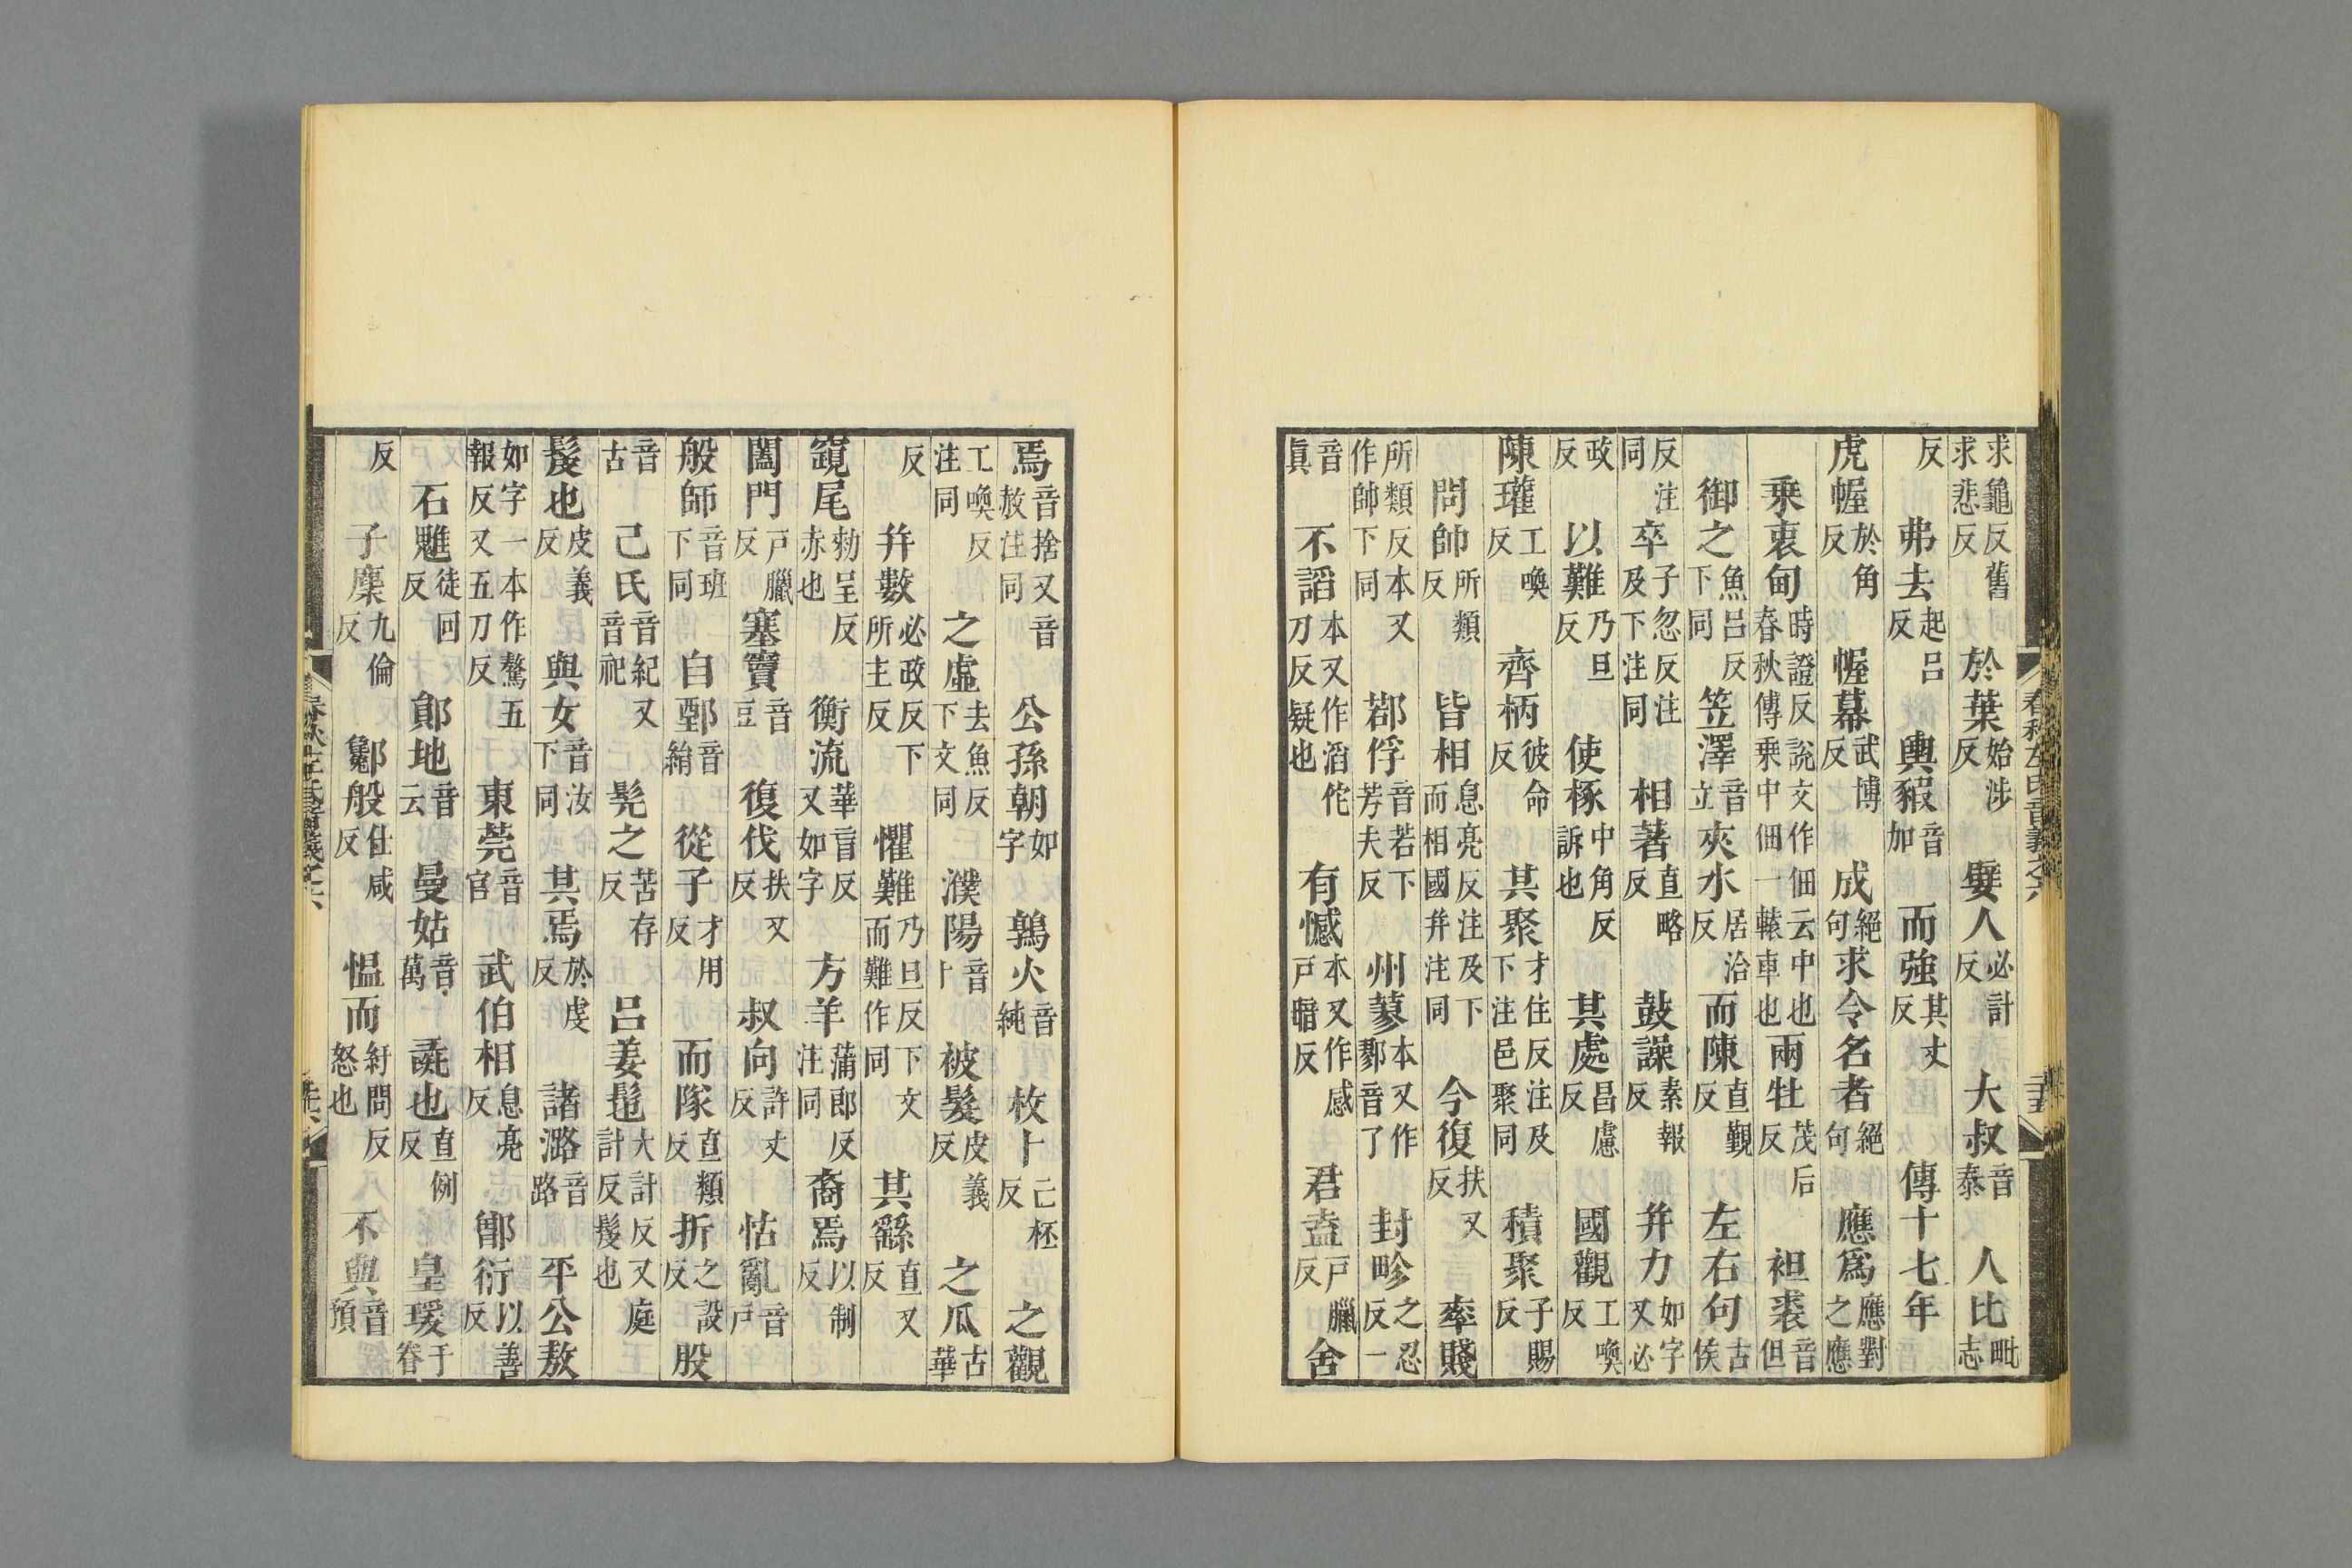 求龜反舊求悲反 於葉始涉反 嬖人必計反 大叔音泰 人比毗志
反 弗去起呂反 輿豭音加 而強其丈反 傳十七年
虎幄於角反 幄幕武博反 成求令名者絕句 應為應對之應
乗衷甸時證反説文作佃云中也春秋傳乗中佃一轅車也 兩牡茂后反 袒裘音但
御之魚呂反下同 笠澤音立 夾水居洽反 而陳直覲反 左右句古侯
反注同 卒子忽反注及下注同 相著直略反 鼓譟素報反 并力如字又必
政反 以難乃旦反 使椓中角反訴也 其處昌慮反 國觀工喚反
陳瓘工喚反 齊柄彼命反 其聚才住反注及下注邑聚同 積聚子賜反
問帥所類反 皆相息亮反注及下而相國并注同 今復扶又反 率賤
所類反本又作帥下同 鄀俘音若下芳夫反 州蓼本又作鄝音了 封畛之忍反一
音真 不諂本又作滔佗刀反疑也 有憾本又作感戸暗反 君盍戸臘反 舍
春秋左氏音義之六 三十五
焉音捨又音赦注同 公孫朝如字 鶉火音純 枚卜亡杯反 之觀
工喚反注同 之虛去魚反下文同 濮陽音卜 被髮皮義反 之瓜古華
反 并數必政反下所主反 懼難乃旦反下文而難作同 其繇直又反
竀尾勑呈反赤也 衡流華盲反又如字 方羊蒲郎反注同 裔焉以制反
闔門戸臘反 塞竇音豆 復伐扶又反 叔向許丈反 怙亂音戸
般師音班下同 自鄄音絹 從子才用反 而隊直類反 折之設反 股
音古 己氏音紀又音祀 髡之苦存反 呂姜髢大計反又庭計反髲也
髲也皮義反 與女音汝下同 其焉於虔反 諸潞音路 平公敖
如字一本作驁五報反又五刀反 東莞音官 武伯相息亮反 鄫衍以善反
石魋徒回反 鄖地音云 曼姑音萬 彘也直例反 皇瑗于眷
反 子麇九倫反 鄭般 仕咸反 慍而紆問反怒也 不與音預